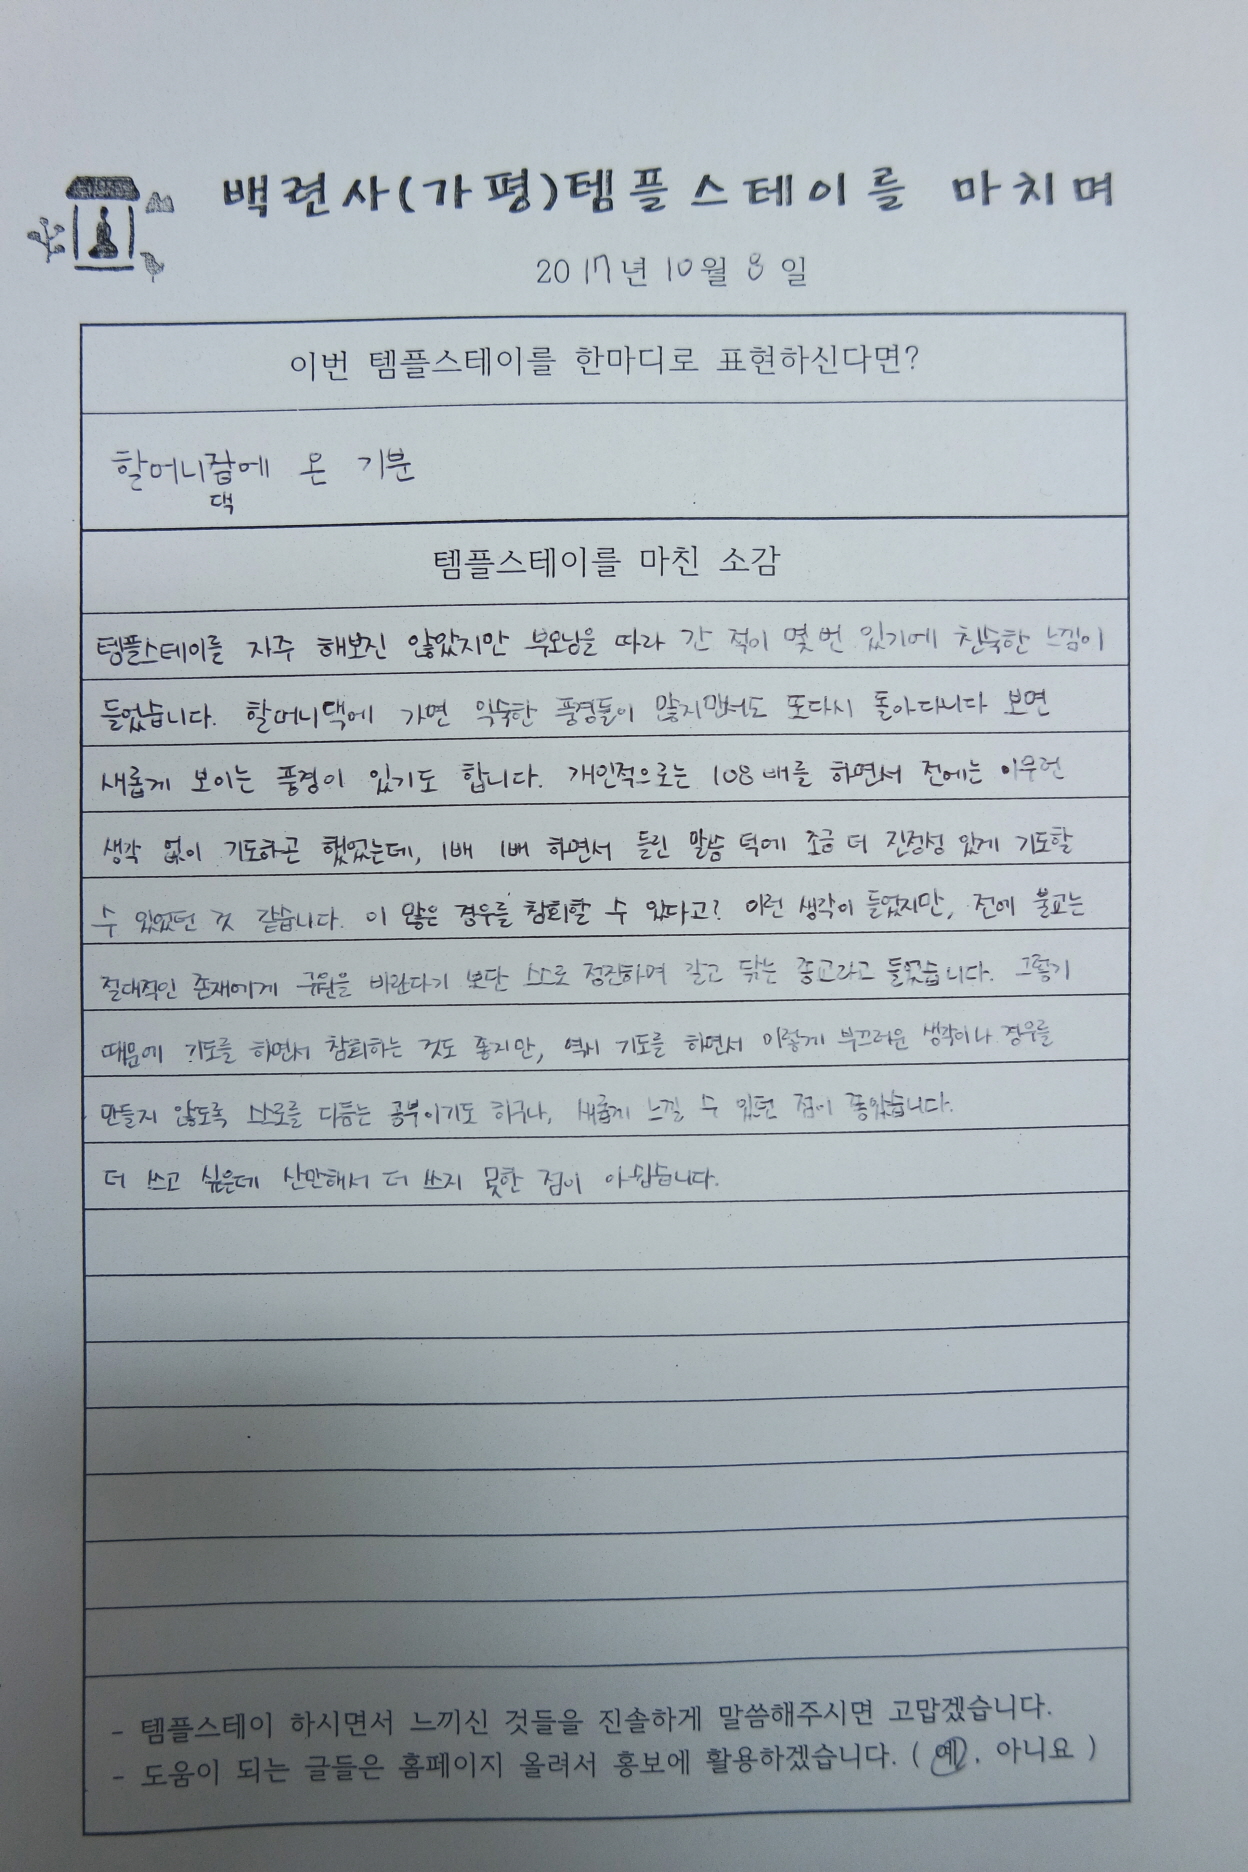 백련사(가평)템플스테이를 마치며
2017년 10월 8일
이번 템플스테이를 한마디로 표현하신다면?
할머니댁에 온 기분
템플스테이를 마친 소감
템플스테이를 자주 해보진 않았지만 부모님을 따라 간 적이 몇 번 있기에 친숙한 느낌이
들었습니다. 할머니댁에 가면 익숙한 풍경들이 많지만서도 또다시 돌아다니다 보면
새롭게 보이는 풍경이 있기도 합니다. 개인적으로는 108배를 하면서 전에는 아무런
생각 없이 기도하곤 했었는데, 1배 1배 하면서 들린 말씀 덕에 조금 더 진정성 있게 기도할
수 있었던 것 같습니다. 이 많은 경우를 참회할 수 있다고? 이런 생각이 들었지만, 전에 불교는
절대적인 존재에게 구원을 바란다기 보단 스스로 정진하며 갈고 닦는 종교라고 들었습니다. 그렇기
때문에 기도를 하면서 참회하는 것도 좋지만, 역시 기도를 하면서 이렇게 부끄러운 생각이나 경우를
만들지 않도록 스스로를 다듬는 공부이기도 하구나, 새롭게 느낄 수 있던 점이 좋았습니다.
더 쓰고 싶은데 산만해서 더 쓰지 못한 점이 아쉽습니다.
- 템플스테이 하시면서 느끼신 것들을 진솔하게 말씀해주시면 고맙겠습니다.
- 도움이 되는 글들은 홈페이지 올려서 홍보에 활용하겠습니다. ( 예, 아니요 )